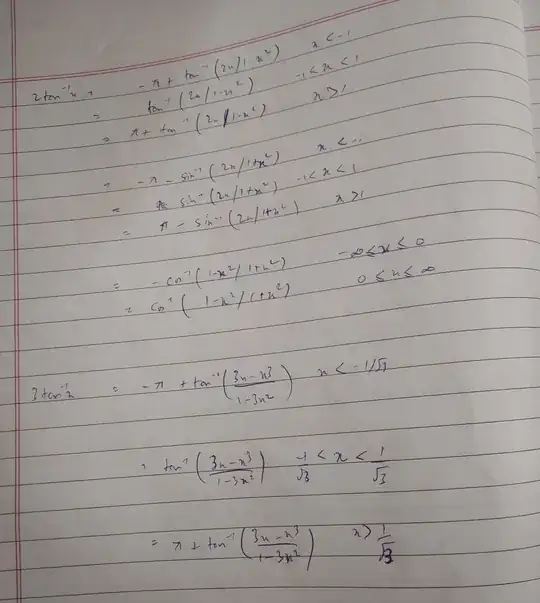 2tan⁻¹x = -π + tan⁻¹(2x/1-x²) x < -1
= tan⁻¹(2x/1-x²) -1 < x < 1
= π + tan⁻¹(2x/1-x²) x > 1
= -π - sin⁻¹(2x/1+x²) x < -1
= sin⁻¹(2x/1+x²) -1 < x < 1
= π - sin⁻¹(2x/1+x²) x > 1
= -cos⁻¹(1-x²/1+x²) -∞ ≤ x ≤ 0
= cos⁻¹(1-x²/1+x²) 0 ≤ x ≤ ∞
3tan⁻¹x = -π + tan⁻¹(3x-x³/1-3x²) x < -1/√3
= tan⁻¹(3x-x³/1-3x²) -1/√3 < x < 1/√3
= π + tan⁻¹(3x-x³/1-3x²) x > 1/√3